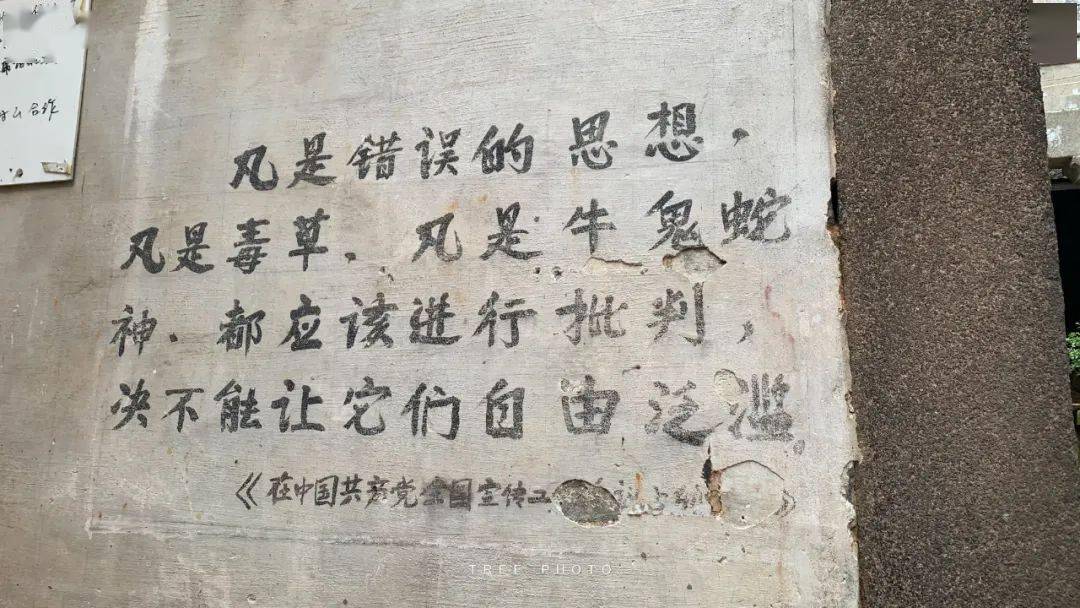 合作
凡是错误的思想，
凡是毒草，凡是牛鬼蛇
神，都应该进行批判，
决不能让它们自由泛滥。
《在中国共产党全国宣传工
》
TREE PHOTO